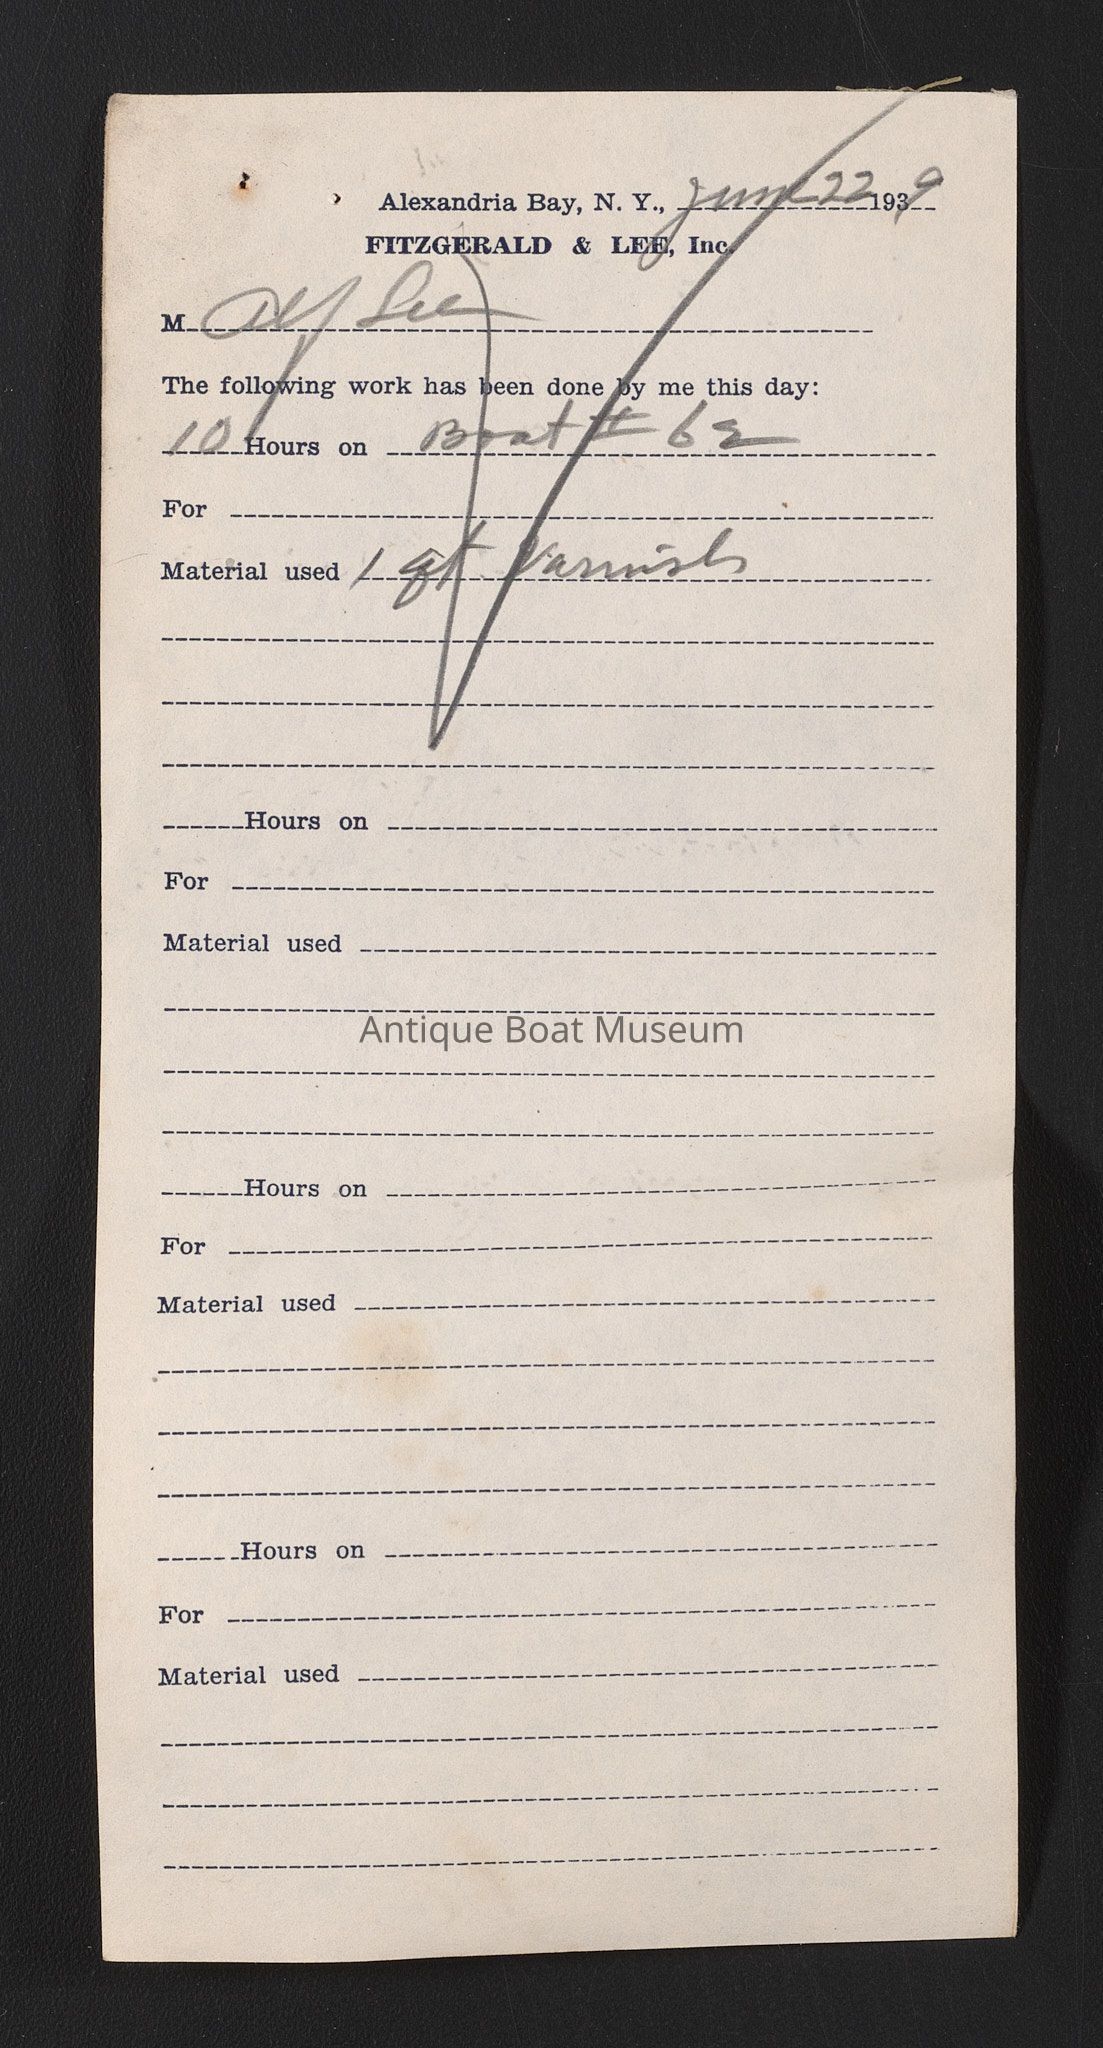 Alexandria Bay, N. Y., June 22 1939
FITZGERALD & LEE, Inc.
M Alf Lee
The following work has been done by me this day:
10 Hours on Boat # 62
For
Material used 1 qt Varnish
Hours on
For
Material used
Antique Boat Museum
Hours on
For
Material used
Hours on
For
Material used